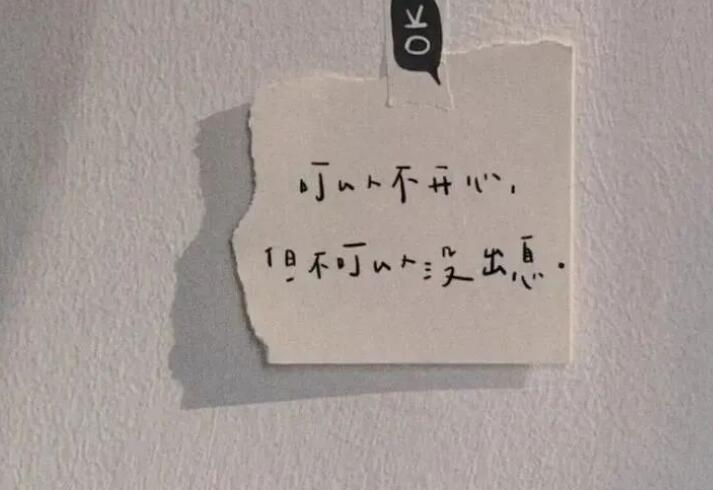 OK
可以不开心,
但不可以没出息.